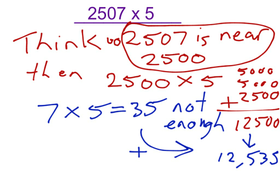 2507 × 5
Think 2507 is near
2500
then 2500 × 5
5000
5000
+ 2500
12500
7 × 5 = 35 not
enough
+
12,535